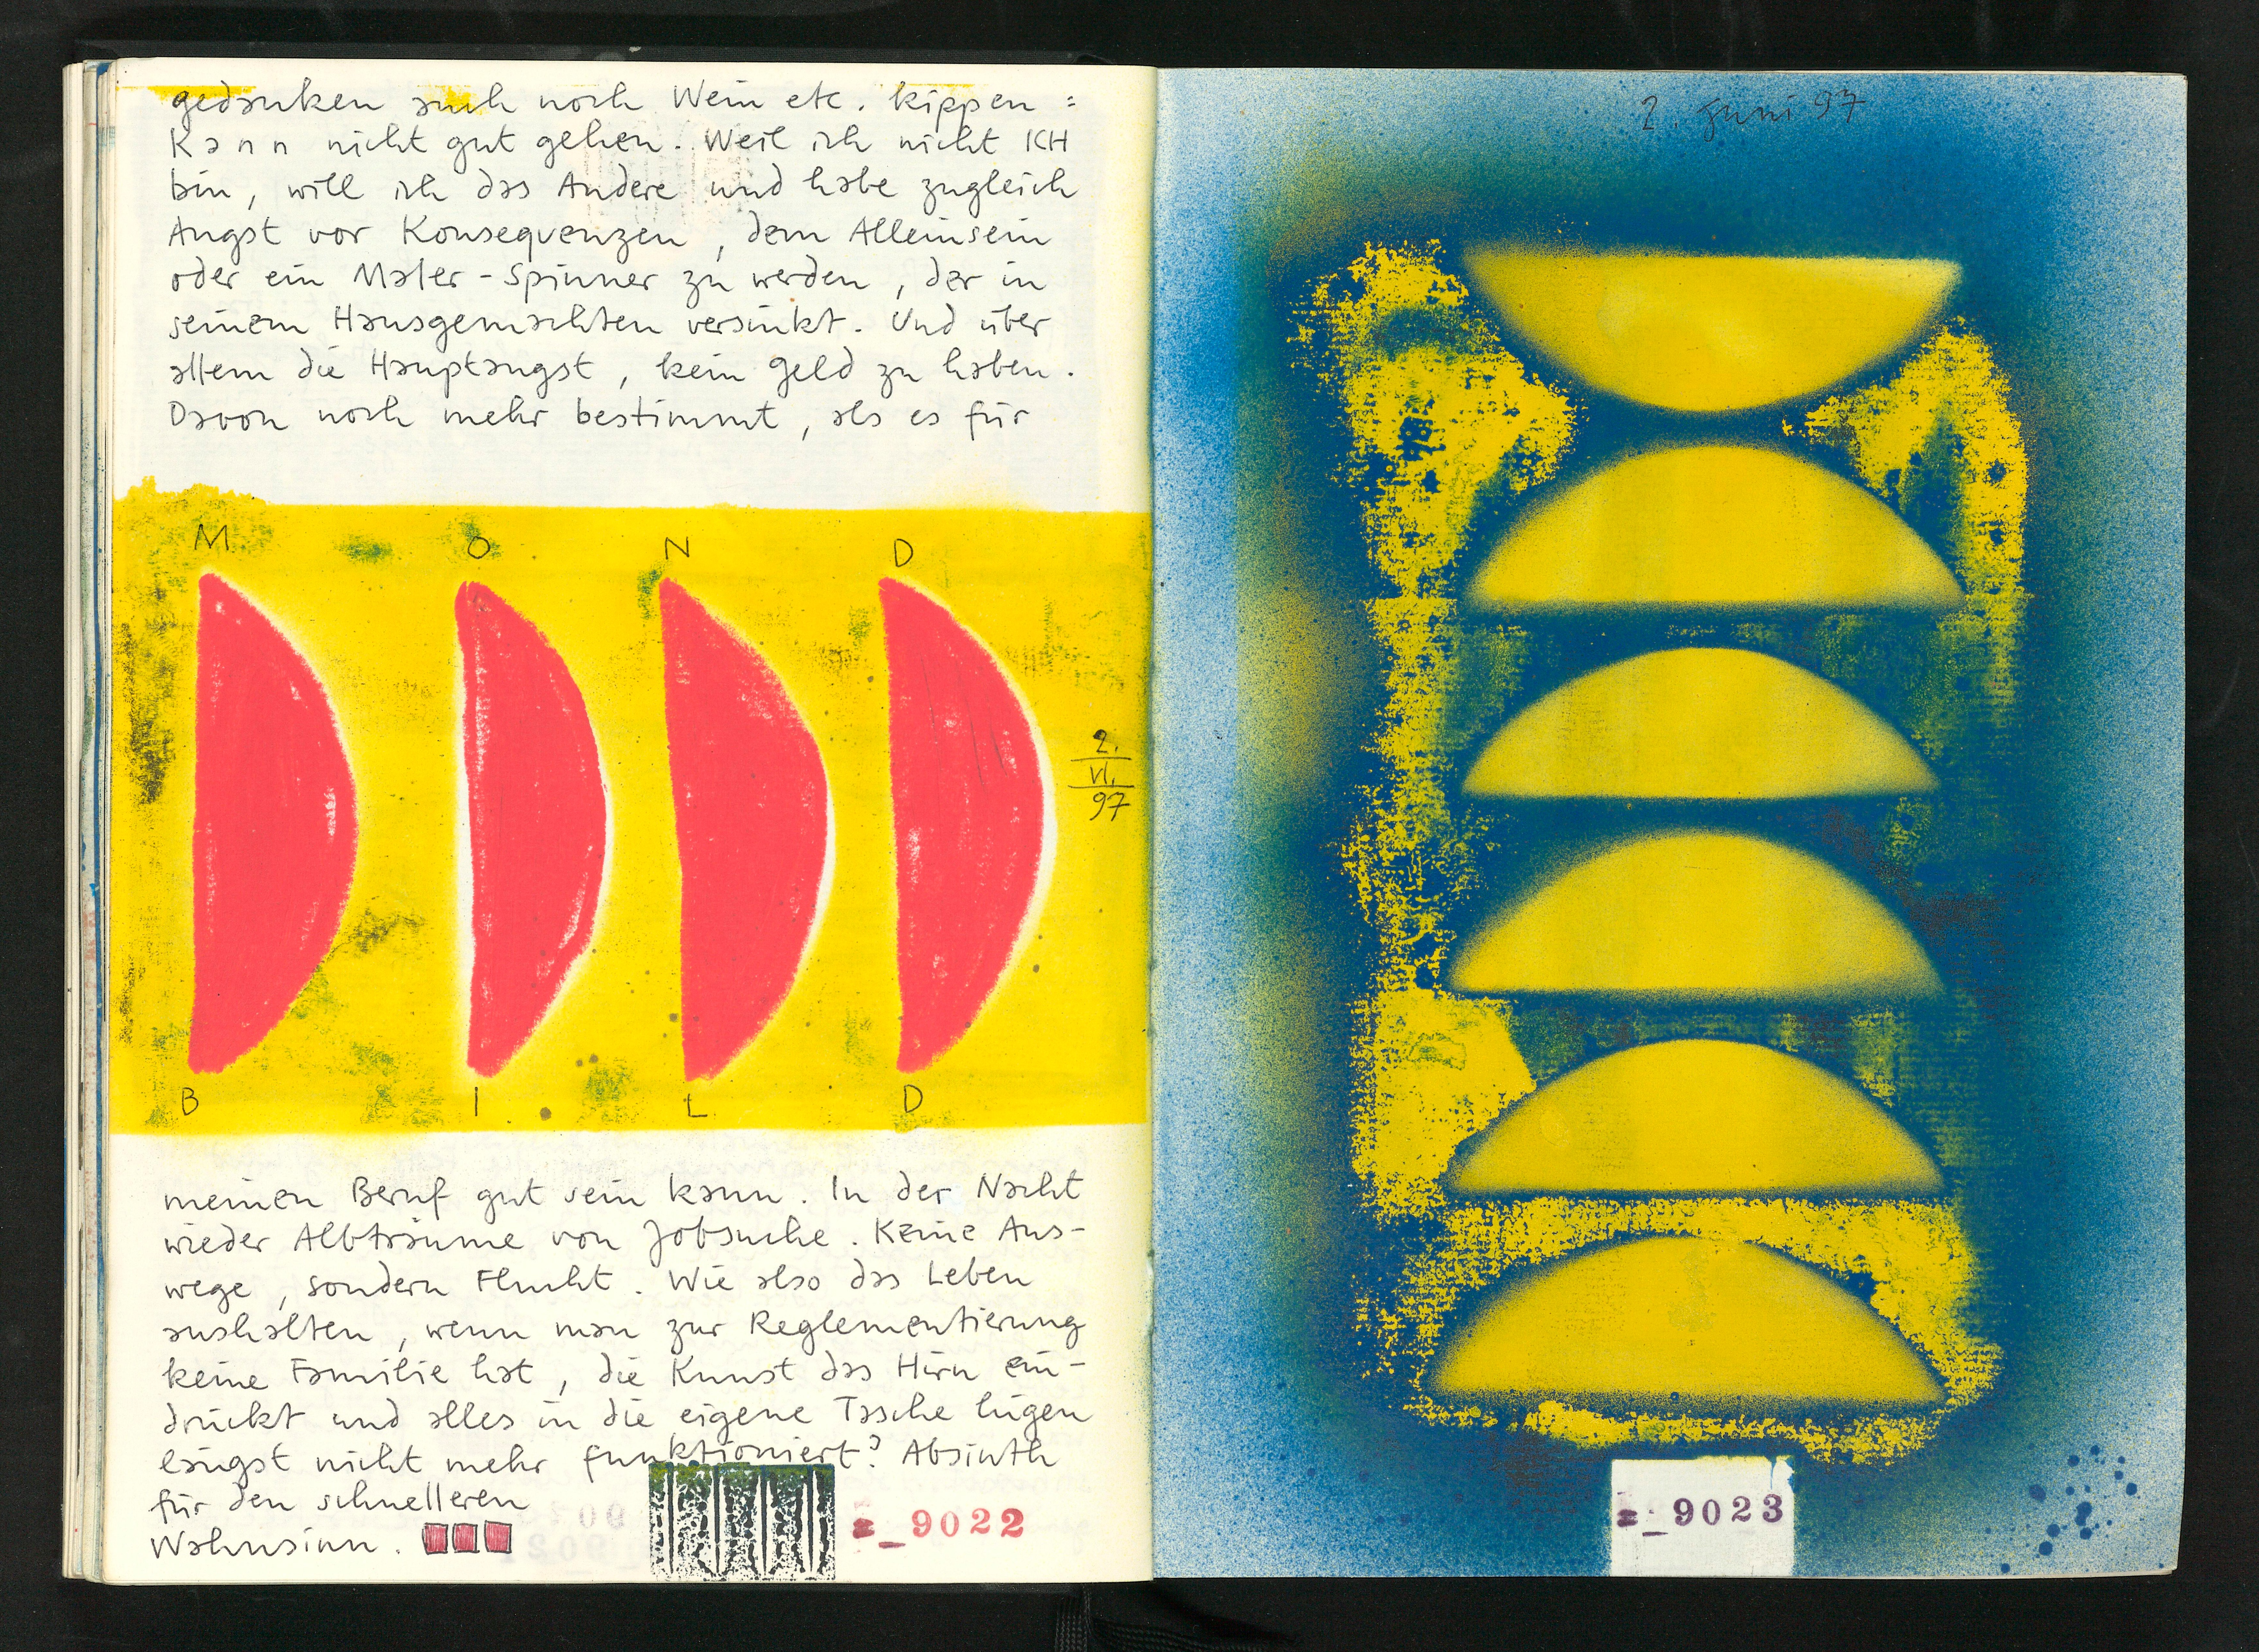 gedanken auch noch Wein etc. kippen =
Kann nicht gut gehen. Weil ich nicht ICH
bin, will ich das Andere und habe zugleich
Angst vor Konsequenzen, dem Alleinsein
oder ein Maler-Spinner zu werden, der in
seinem Hausgemachten versinkt. Und über
allem die Hauptangst, kein Geld zu haben.
Davon noch mehr bestimmt, als es für
M O N D
2.
VI.
97
B I L D
meinen Beruf gut sein kann. In der Nacht
wieder Albträume von Jobsuche. Keine Aus-
wege, sondern Flucht. Wie also das Leben
aushalten, wenn man zur Reglementierung
keine Familie hat, die Kunst das Hirn ein-
drückt und alles in die eigene Tasche lügen
längst nicht mehr funktioniert? Absinth
für den schnelleren
Wahnsinn.
_9022
2. Juni 97
_9023